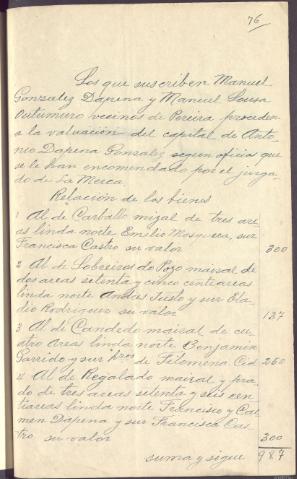 76
Los que suscriben Manuel
Gonzalez Dapena y Manuel Sousa
Outumuro vecinos de Pereira proceden
a la valuación del capital de Anto-
nio Dapena Gonzalez segun oficio que
se le han encomendado por el juzga-
do de La Merca.
Relación de los bienes
1 Al de Carballo mizal de tres are-
as linda norte Emilio Mosquera, sur
Francisca Castro su valor 300
2 Al de Sobreiros do Pozo maizal de
dos areas setenta y cinco centiareas
linda norte Justo y sur Ela-
dio Rodriguez su valor 137
3 Al de Candedo maizal de cu-
atro Areas linda norte Benjamin
Garrido y sur hros de Filomena Cid 250
4 Al de Regalado maizal y pra-
do de tres areas setenta y seis cen-
tiareas linda norte Francisco y Car-
men Dapena y sur Francisca Cas-
tro su valor 300
suma y sigue 987